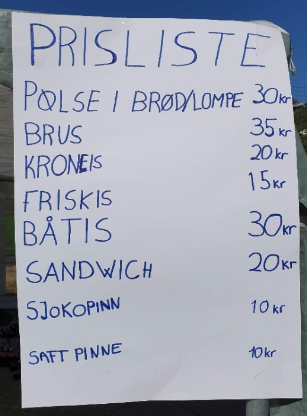 PRISLISTE
PØLSE I BRØD/LOMPE 30kr
BRUS 35kr
KRONEIS 20kr
FRISKIS 15kr
BÅTIS 30kr
SANDWICH 20kr
SJOKOPINN 10kr
SAFT PINNE 10kr